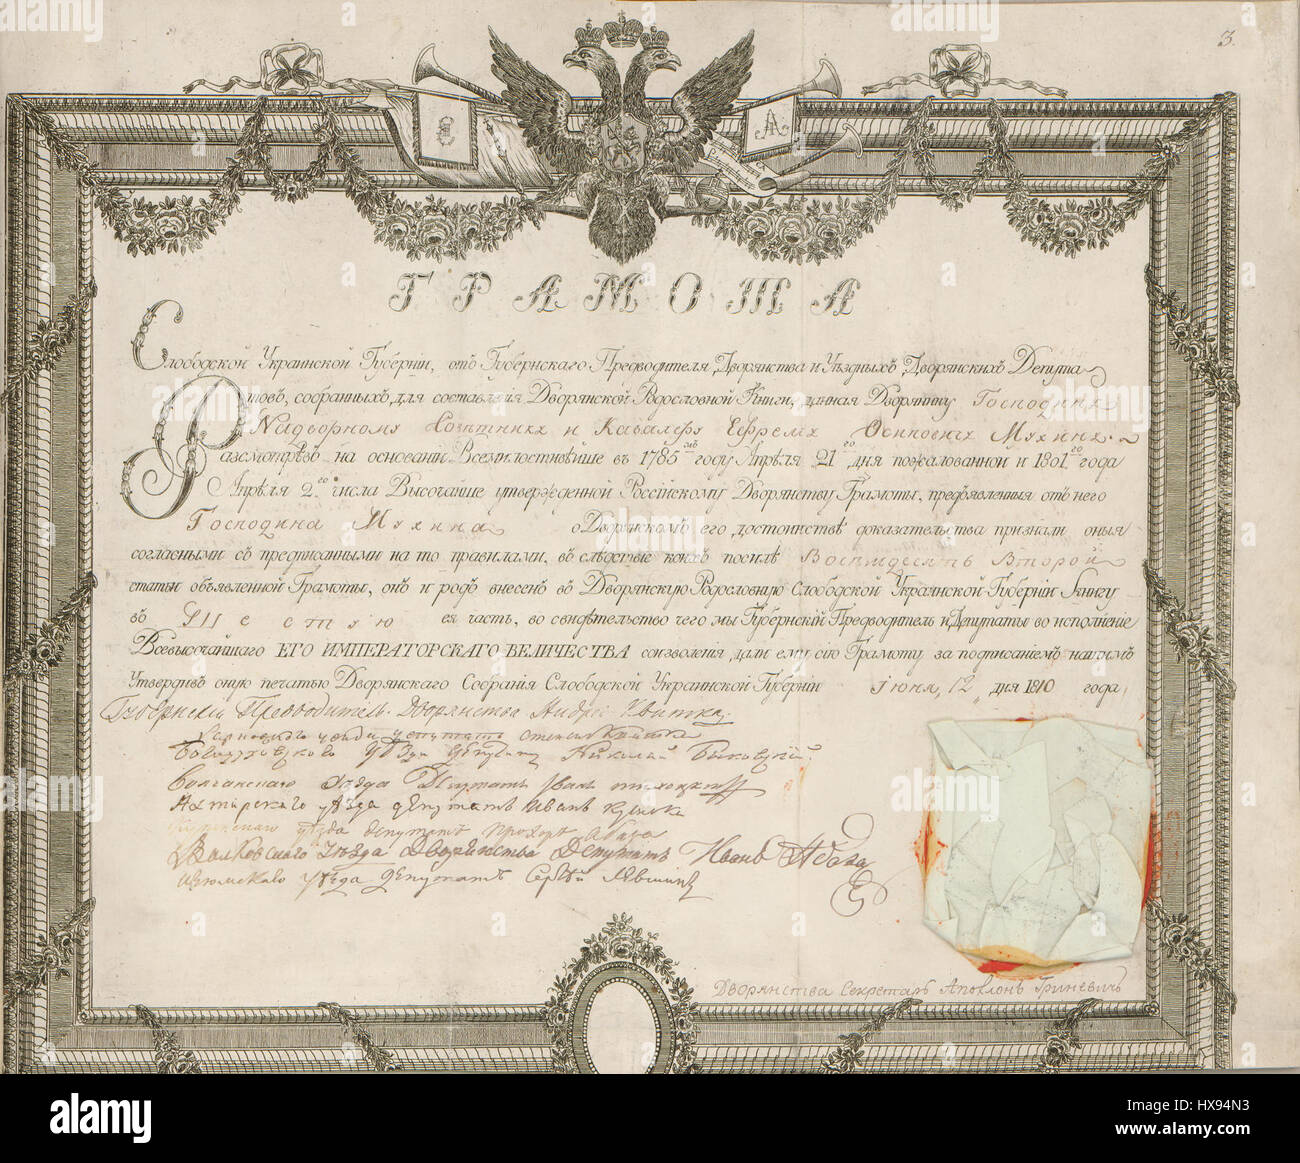 3.
ГРАМОТА
Слободской Украинской Губерніи, отъ Губернскаго Предводителя Дворянства и Уѣздныхъ Дворянскихъ Депута
товъ, собранныхъ для составленія Дворянской Родословной Книги, данная Дворянину Господину
Надворному Совѣтнику и Кавалеру Ефрему Осиповичу Мухину.
Разсмотрѣвъ на основаніи Всемилостивѣйше въ 1785мъ году Апрѣля 21го дня пожалованной и 1801го года
Апрѣля 2го числа Высочайше утвержденной Россійскому Дворянству Грамоты, предъявленныя отъ него
Господина Мухина о Дворянскомъ его достоинствѣ доказательства признали оныя
согласными съ предписанными на то правилами, въ слѣдствіе коихъ по силѣ Восемдесятъ Второй
статьи объявленной Грамоты, онъ и родъ внесенъ въ Дворянскую Родословную Слободской Украинской Губерніи Книгу
въ Шестую ея часть, во свидѣтельство чего мы Губернскій Предводитель и Депутаты во исполненіе
Всевысочайшаго ЕГО ИМПЕРАТОРСКАГО ВЕЛИЧЕСТВА соизволенія дали ему сію Грамоту за подписаніемъ нашимъ
Утвердивъ оную печатью Дворянскаго Собранія Слободской Украинской Губерніи Іюня, 12 дня 1810 года
Губернскій Предводитель Дворянства Андрей Квитка
уѣзда депутатъ
Богодуховскаго уѣзда депутатъ Николай
уѣзда Депутатъ
Ахтырскаго уѣзда депутатъ Иванъ
уѣзда депутатъ Прохоръ Абаза
Валковскаго уѣзда Дворянства Депутатъ Иванъ Абаза
Изюмскаго уѣзда депутатъ Сергѣй
Дворянства Секретарь Аполлонъ Гриневичь
alamy
alamy
www.alamy.com
Image ID: HX94N3